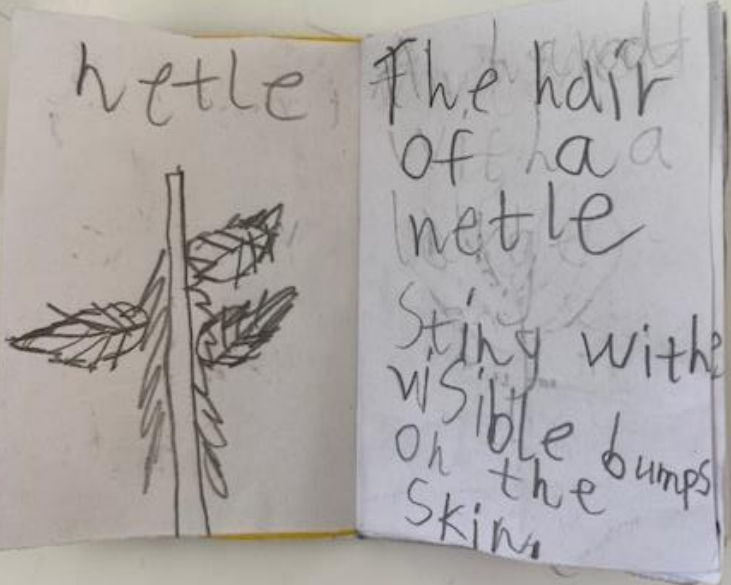 netle
The hair
of a
netle
Sting withe
visible
bumps
on the
skin.